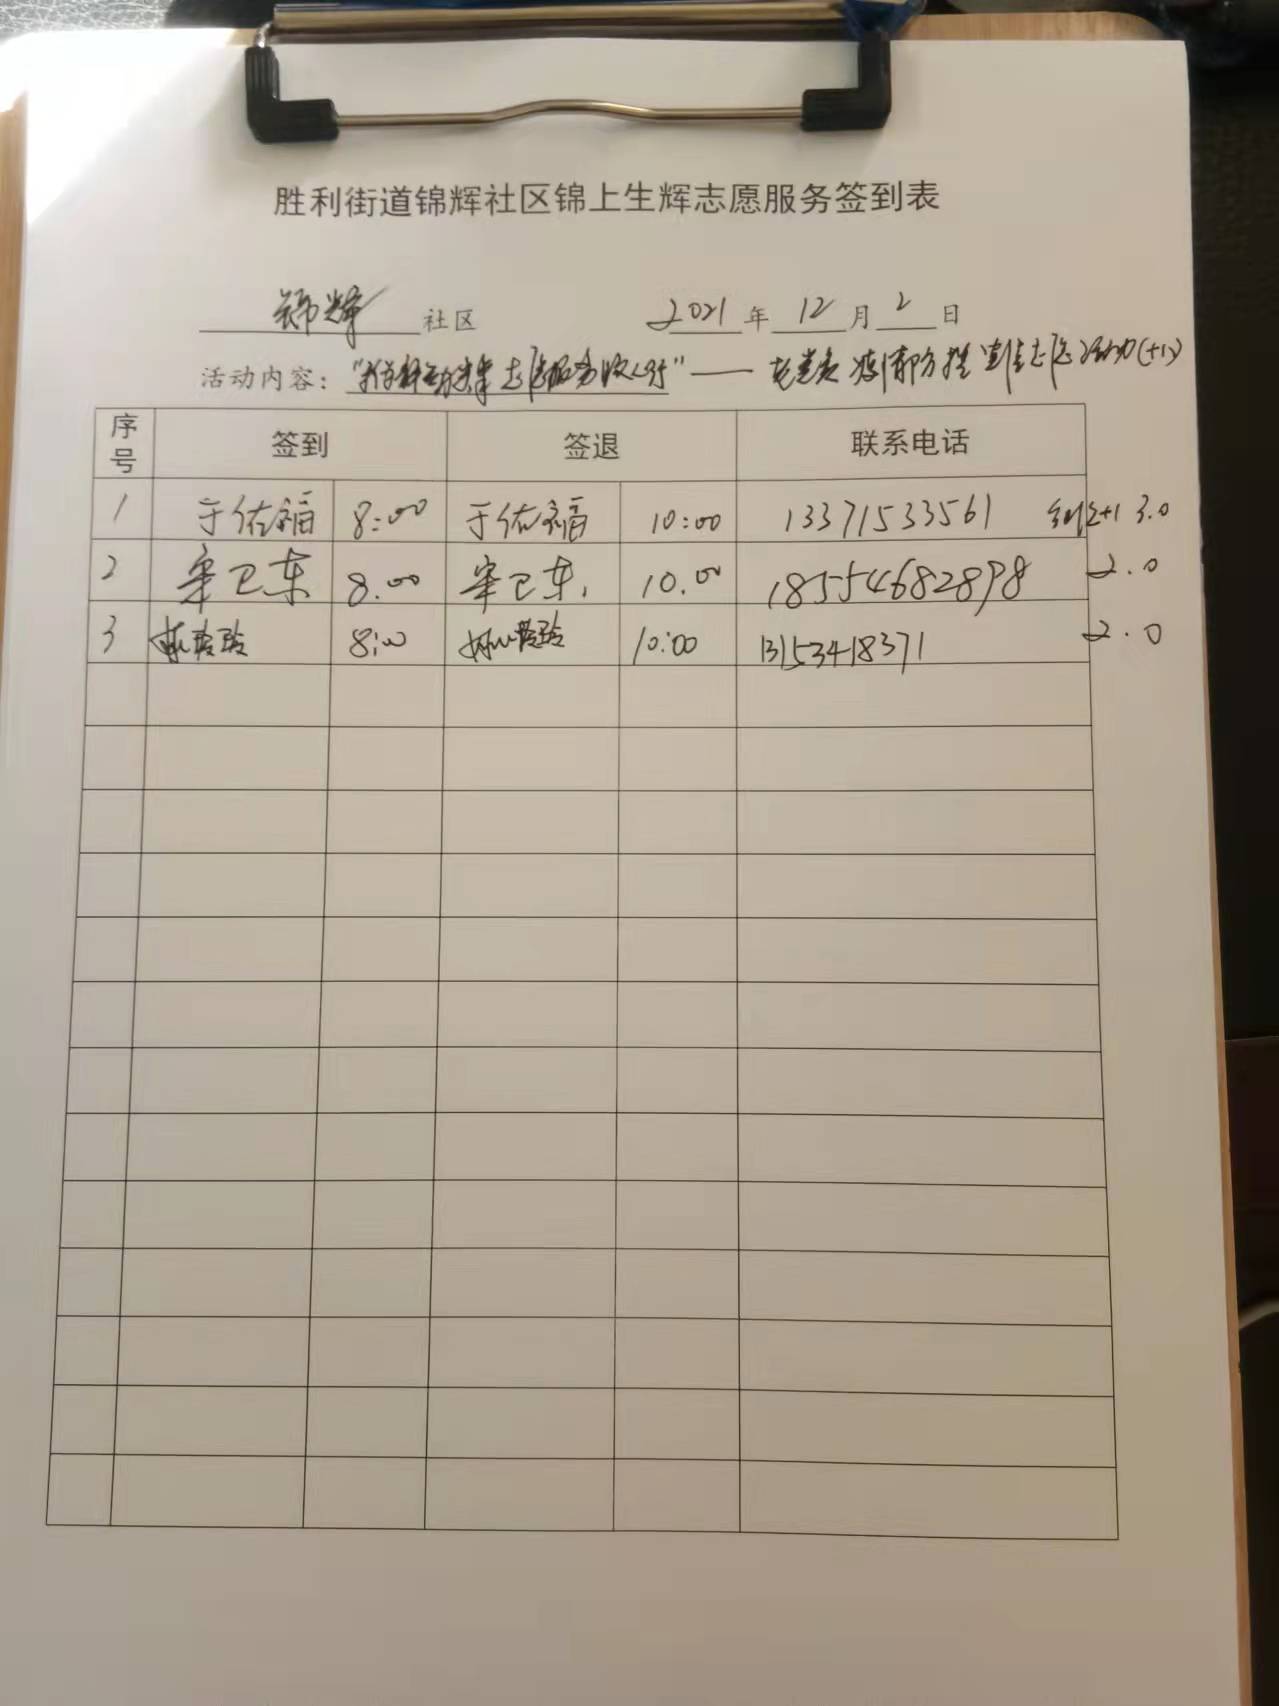 胜利街道锦辉社区锦上生辉志愿服务签到表
锦辉 社区 2021 年 12 月 2 日
活动内容： 志愿服务 " —— 老党员 疫情防控 宣传志愿活动(+1)
序号 签到 签退 联系电话
1 于佑福 8:00 于佑福 10:00 13371533561 +1 3.0
2 辛卫东 8.00 辛卫东 10.00 18554682898 2.0
3 玲玲 8:00 玲玲 10:00 13153418371 2.0